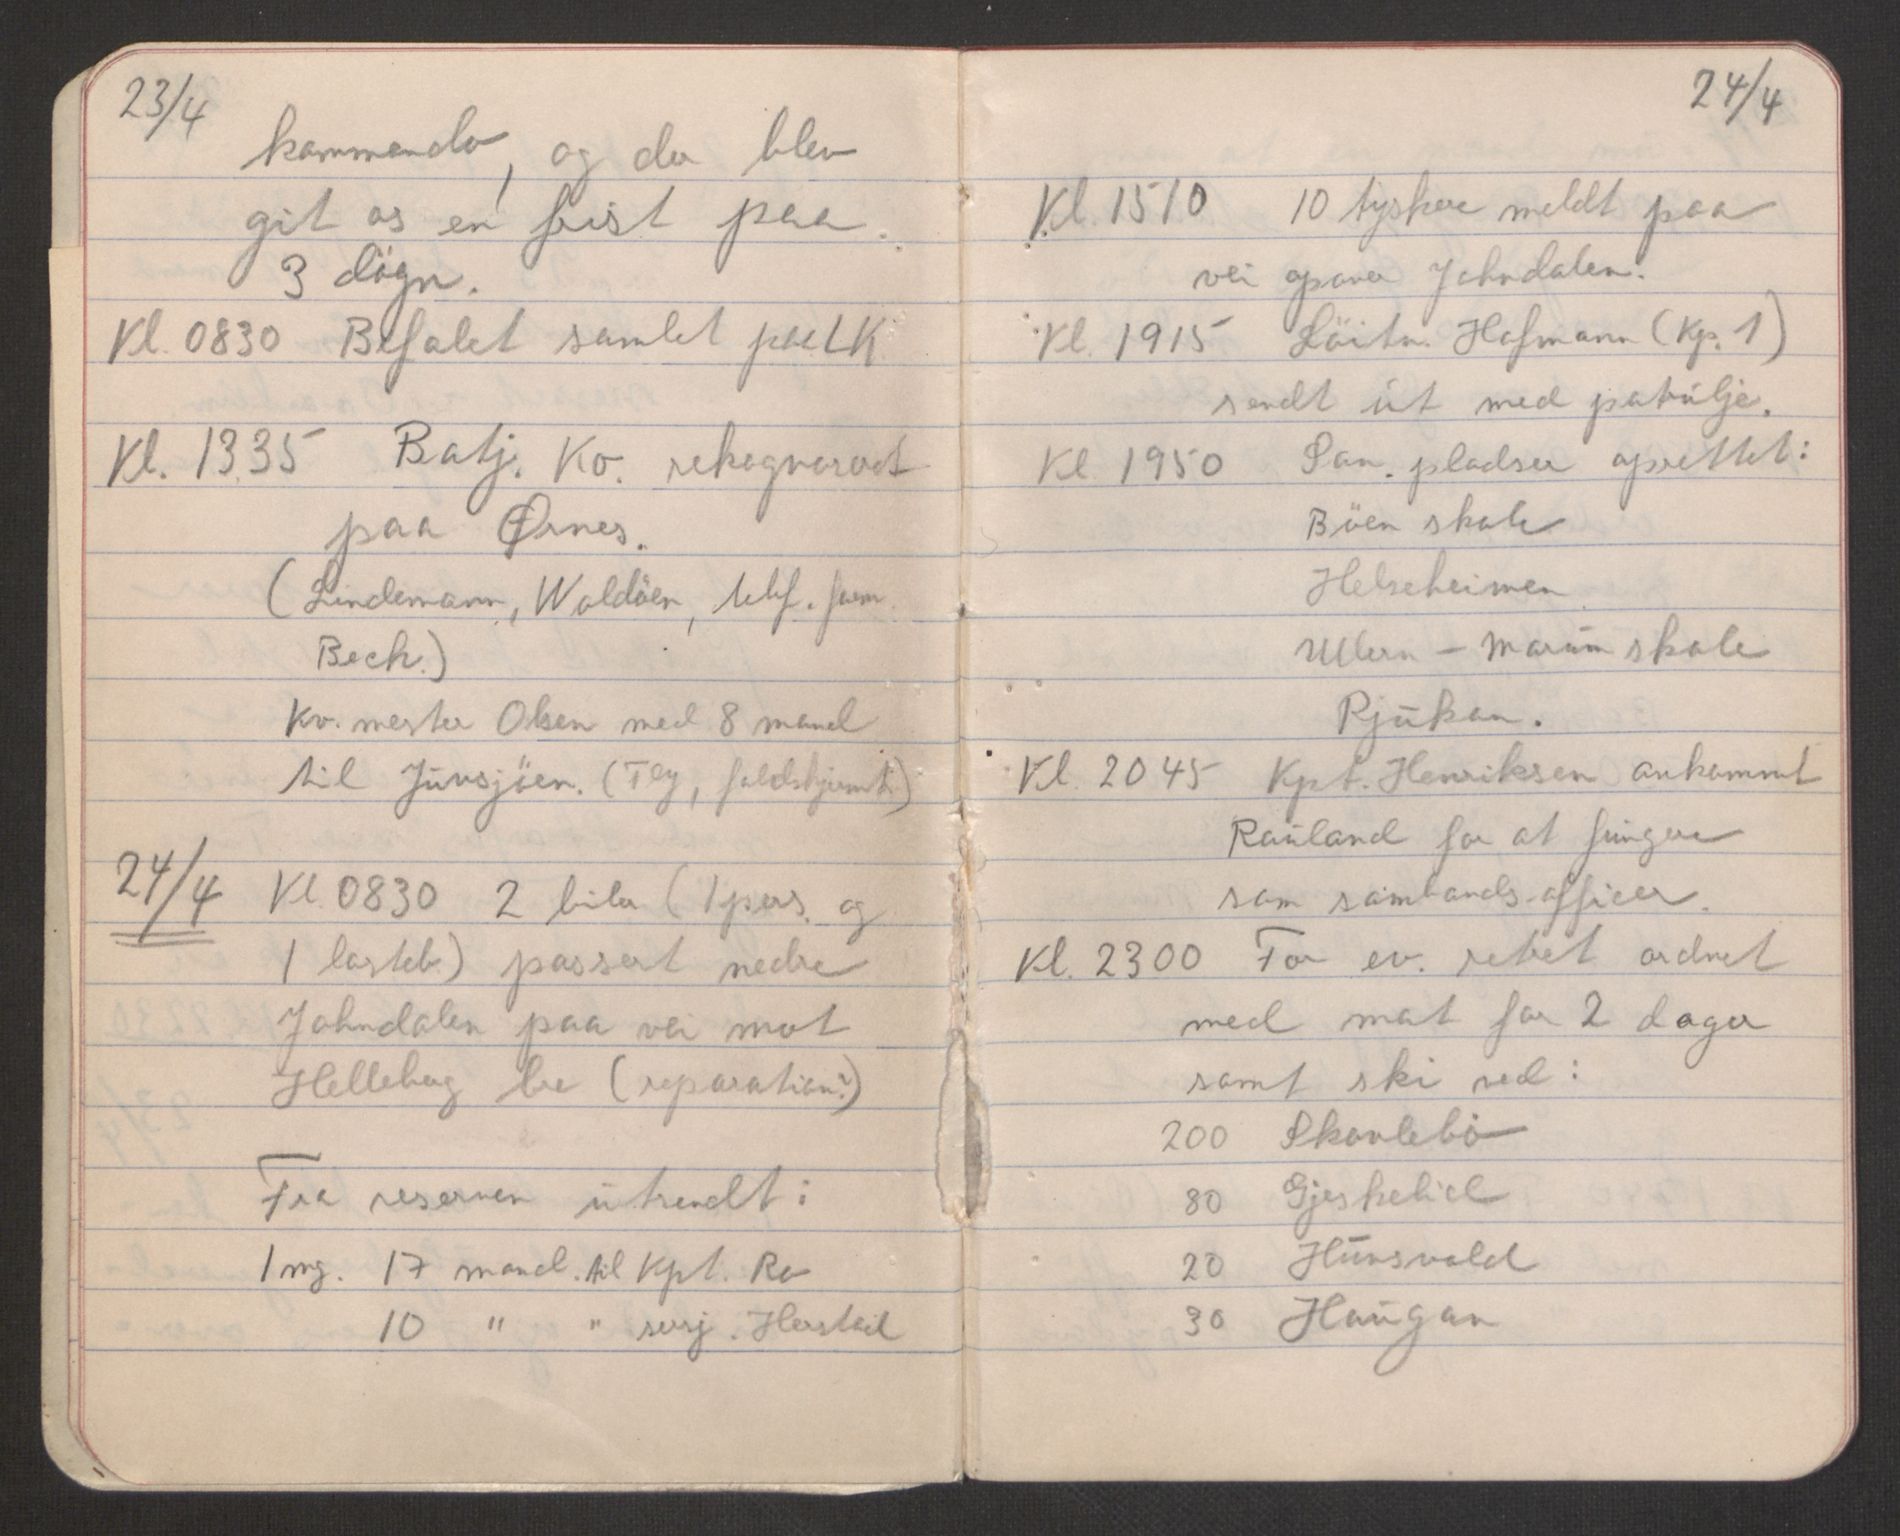 23/4
kommando, og der blev
git os en frist paa
3 døgn.
Kl. 0830 Befalet samlet paa LK
Kl. 1335 Batj. Ko. rekognoserat
paa Ørnes.
(Lindemann, Waldöen, telef.
Beck.)
Kv. mester Olsen med 8 mand
til Jüvsjöen. (Fly, faldskjermt.)
24/4 Kl. 0830 2 biler (1 pers. og
1 lasteb) passert nedre
Johndalen paa vei mot
Helleberg bre (reparation?)
Fra reserven ütsendt:
1 mg. 17 mand. til Kpt. Ro
10 " " serj. Herstad
24/4
Kl. 1510 10 tyskere meldt paa
vei opover Johndalen.
Kl. 1915 Löitn. Hofmann (Kp. 1)
sendt üt med patrülje.
Kl 1950 San. pladser oprettet:
Böen skole
Helseheimen
Ullern - Marüm skole
Rjükan.
Kl. 2045 Kpt. Henriksen ankommet
Raüland for at füngere
som sambands-officer.
Kl. 2300 For ev. retret ordnet
med mat for 2 dager
samt ski ved:
200 Skavlebö
80 Gjeskelid
20 Hünsvald
30 Haügan